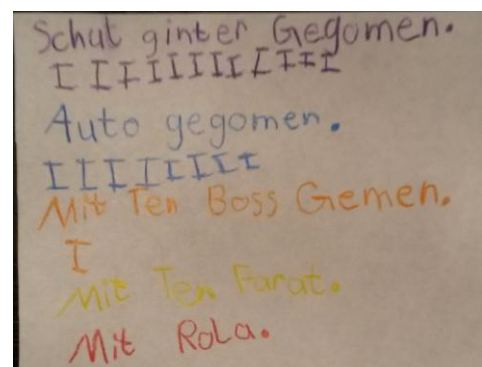 Schul ginter Gegomen.
I I I I I I I I I I I I
Auto gegomen.
I I I I I I I I
Mit Ten Boss Gemen.
I
Mit Ten Farat.
Mit Rola.